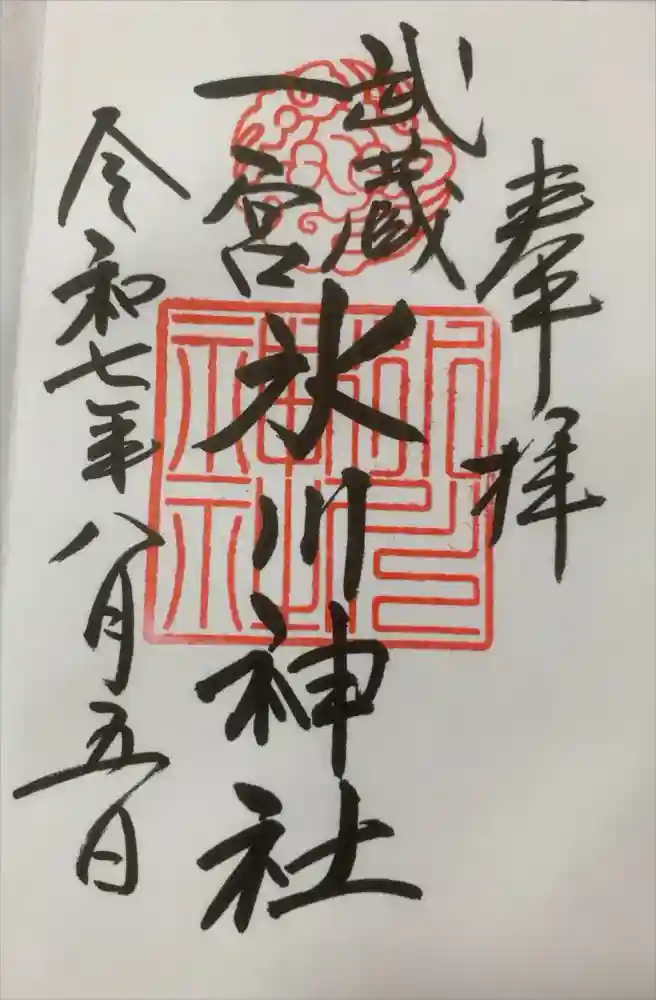 奉拝
武蔵
一宮
氷川神社
令和七年八月五日